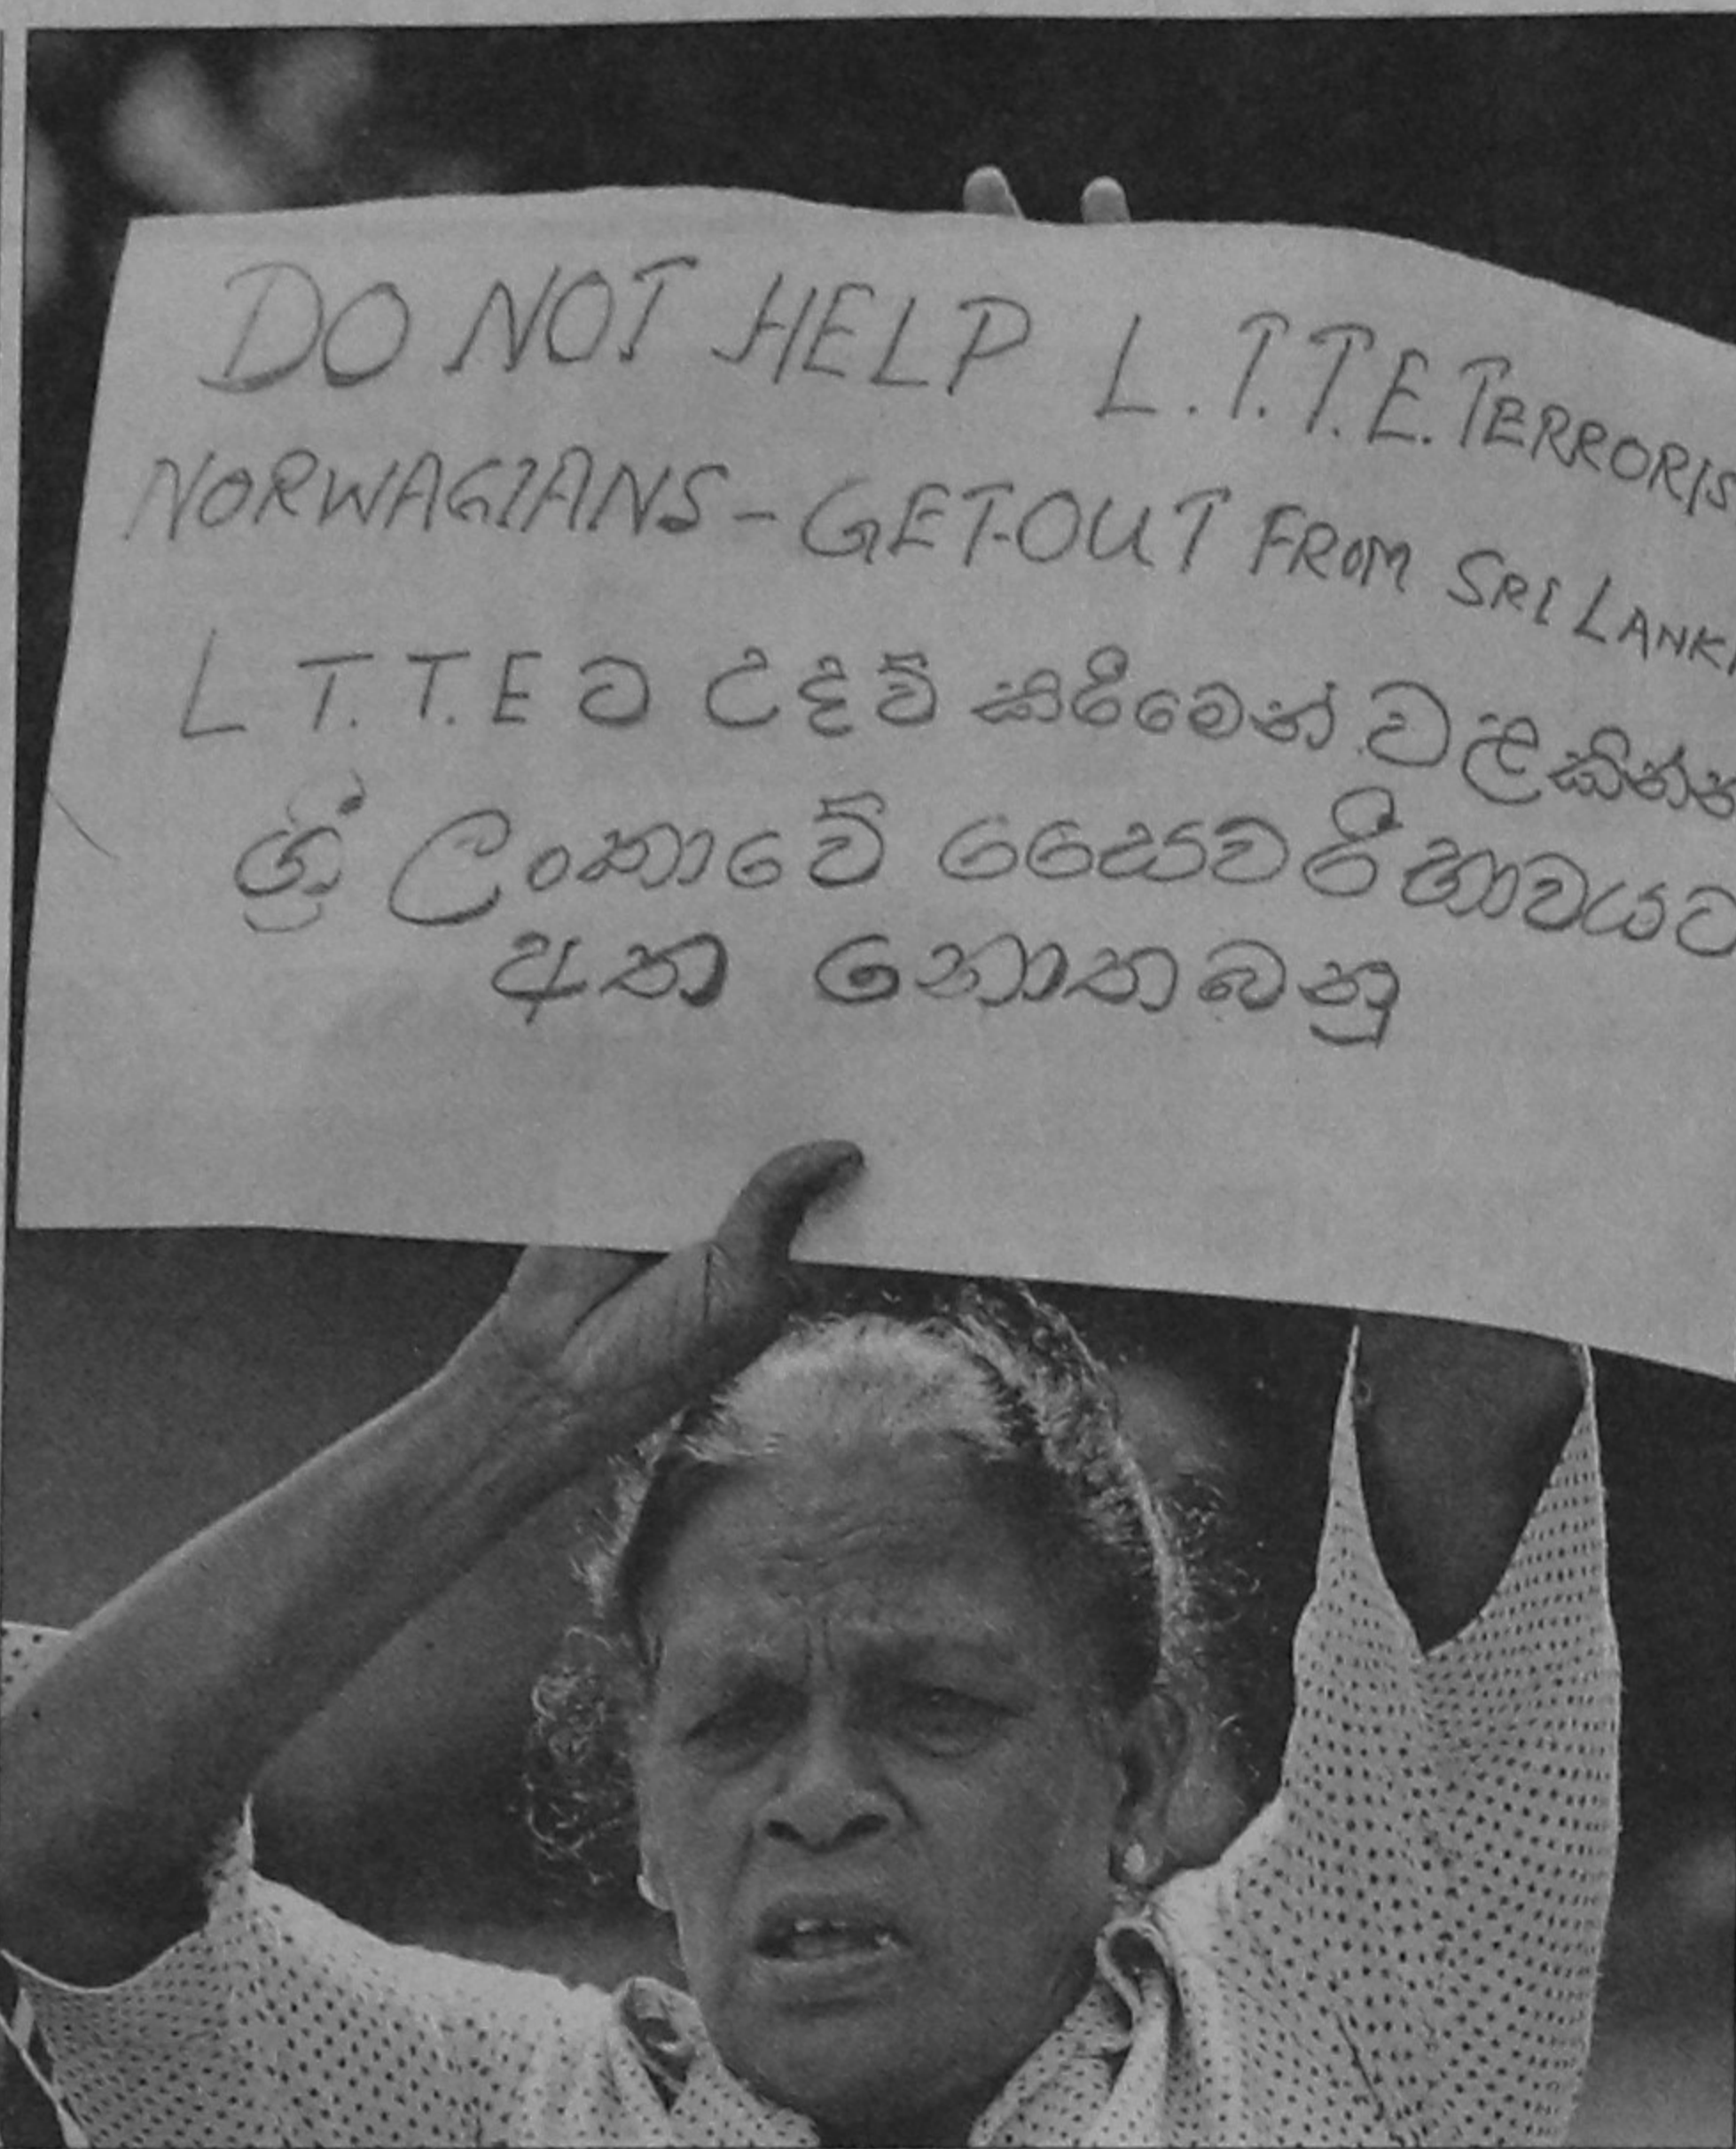 DO NOT HELP L.T.T.E. TERRORIS
NORWAGIANS - GET-OUT FROM SRI LANK
L T.T.E ට උදව් කිරීමෙන් වළකින්න
ශ්‍රී ලංකාවේ සෛවරීභාවයට
අත නොතබනු